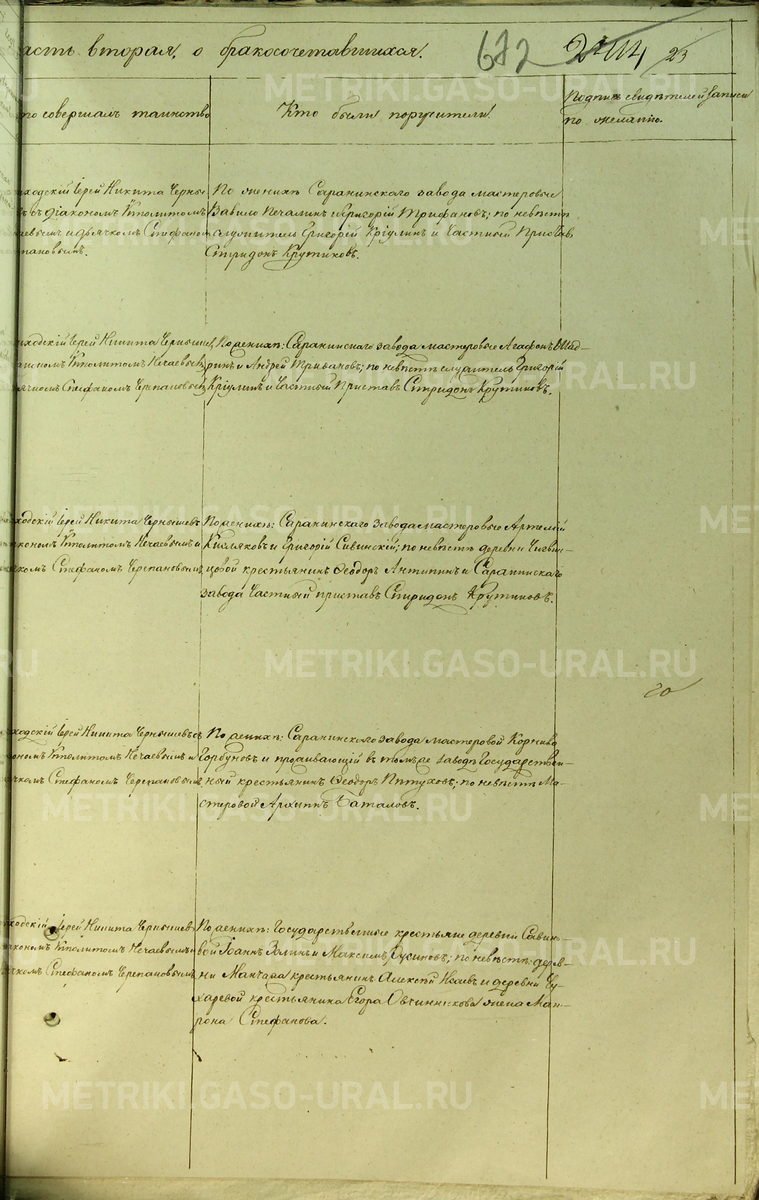 асть вторая, о бракосочетавшихся.
672
23
то совершалъ таинство
Кто были поручители.
Подпись свидѣтелей записи
по желанію.
иходскій Іерей Никита Черны-
діакономъ Ипполитомъ
аевымъ и дьячкомъ Стефаномъ
пановымъ.
По женихѣ Саранинскаго завода мастеровые
Вавило Печалинъ и Григорій Трифановъ; по невѣстѣ
служитель Григорій Кріулинъ и Частный Приставъ
Спиридонъ Крутиковъ.
иходскій Іерей Никита Чернышевъ
Ипполитомъ Нечаевымъ
Стефаномъ Черепановымъ
По женихѣ: Саранинскаго завода мастеровые Агафонъ Шад-
ринъ и Андрей Тривановъ; по невѣстѣ служитель Григорій
Кріулинъ и Частный Приставъ Спиридонъ Крутиковъ.
ходскій Іерей Никита Чернышевъ
кономъ Ипполитомъ Нечаевымъ и
комъ Стефаномъ Черепановымъ
По женихѣ: Саранинскаго завода мастеровые Артемій
Кисляковъ и Григорій Сивинскій; по невѣстѣ деревни
цовой крестьянинъ Ѳеодоръ Антипинъ и Саранинскаго
завода Частный приставъ Спиридонъ Крутиковъ.
20
ходскій Іерей Никита Чернышевъ съ
кономъ Ипполитомъ Нечаевымъ и
чкомъ Стефаномъ Черепановымъ
По женихѣ: Саранинскаго завода мастеровой Корнило
Горбуновъ и проживающій въ томъ же заводѣ Государствен-
ный крестьянинъ Ѳеодоръ Пѣтуховъ; по невѣстѣ Ма-
стеровой Архипъ Баталовъ.
ходскій Іерей Никита Чернышевъ
акономъ Ипполитомъ Нечаевымъ и
чкомъ Стефаномъ Черепановымъ
По женихѣ: Государственные крестьяне деревни Савин-
вой Іоаннъ Зылинъ и Максимъ Русиновъ; по невѣстѣ: дерев-
ни Манчажа крестьянинъ Алексѣй Исаевъ и деревни Чу-
харевой крестьянина Егора Овчинникова жена Мат-
рона Стефанова.
METRIKI.GASO-URAL.RU